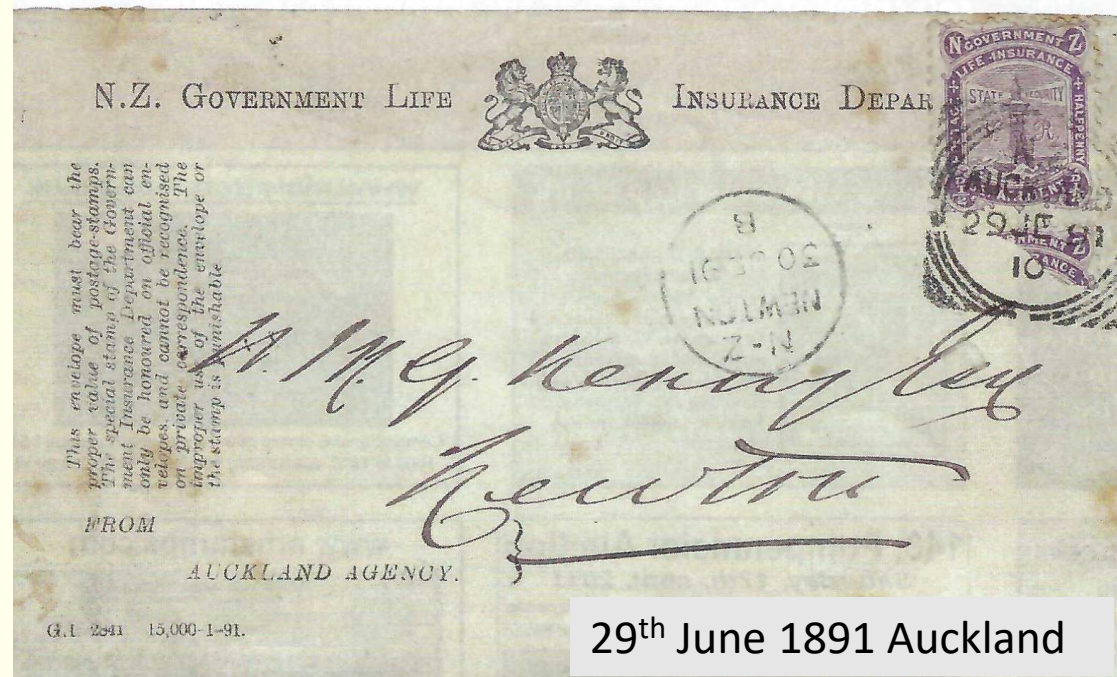 N.Z. GOVERNMENT LIFE INSURANCE DEPAR
N GOVERNMENT Z
LIFE INSURANCE
STATE SECURITY
HALFPENNY
R
AUCK
29 JE 91
10
RNMENT Z
ANCE
This envelope must bear the
proper value of postage-stamps.
The special stamp of the Govern-
ment Insurance Department can
only be honoured on official en-
velopes, and cannot be recognised
on private correspondence. The
improper use of the envelope or
the stamp is punishable
N-Z
NEWTON
30 JE 91
B
H. M. G. Kenny Esq
Newton
FROM
AUCKLAND AGENCY.
G.I 2841 15,000-1-91.
29th June 1891 Auckland